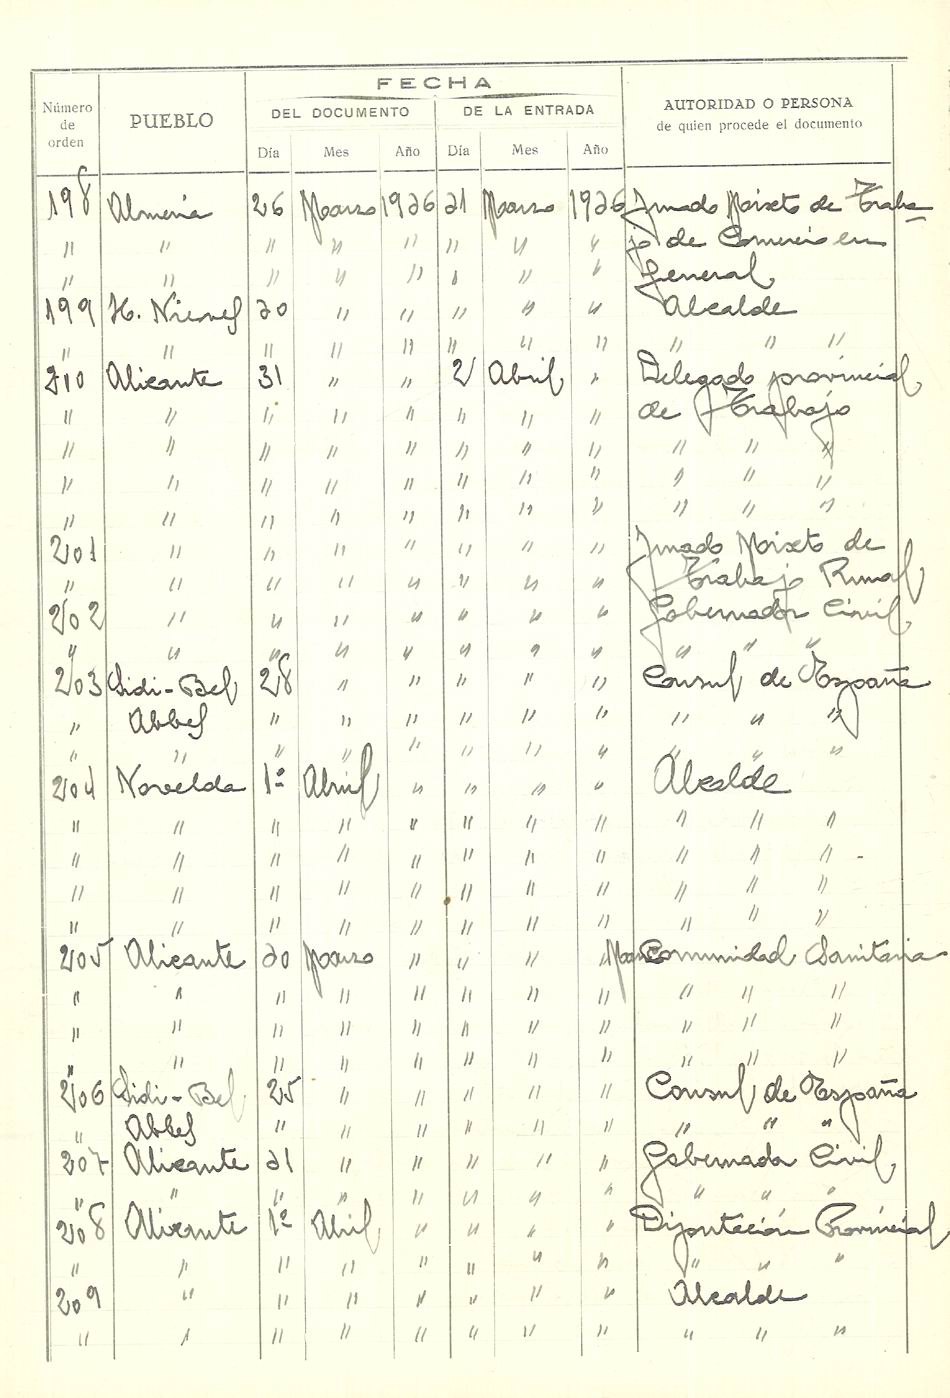 FECHA
Número de orden PUEBLO DEL DOCUMENTO DE LA ENTRADA AUTORIDAD O PERSONA
de quien procede el documento
Día Mes Año Día Mes Año
198 Almeria 26 Marzo 1926 31 Marzo 1926 Jurado Mixto de Traba-
" " " " " " " " jo de Comercio en
" " " " " " " " General
199 H. Nieves 30 " " " " " Alcalde
" " " " " " " " " " "
210 Alicante 31 " " 2 Abril " Delegado provincial
" " " " " " " " de Trabajo
" " " " " " " " " " "
" " " " " " " " " " "
" " " " " " " " " " "
201 " " " " " " " Jurado Mixto de
" " " " " " " " Trabajo Rural
202 " " " " " " " Gobernador Civil
" " " " " " " " " " "
203 Sidi-Bel 28 " " " " " Consul de España
" Abbes " " " " " " " " "
" " " " " " " " " " "
204 Novelda 1º Abril " " " " Alcalde
" " " " " " " " " " "
" " " " " " " " " " "
" " " " " " " " " " "
" " " " " " " " " " "
205 Alicante 30 Marzo " " " " Comunidad Sanitaria
" " " " " " " " " " "
" " " " " " " " " " "
" " " " " " " " " " "
206 Sidi-Bel 25 " " " " " Consul de España
" Abbes " " " " " " " " "
207 Alicante 31 " " " " " Gobernador Civil
" " " " " " " " " " "
208 Alicante 1º Abril " " " " Diputación Provincial
" " " " " " " " " " "
209 " " " " " " " Alcalde
" " " " " " " " " " "